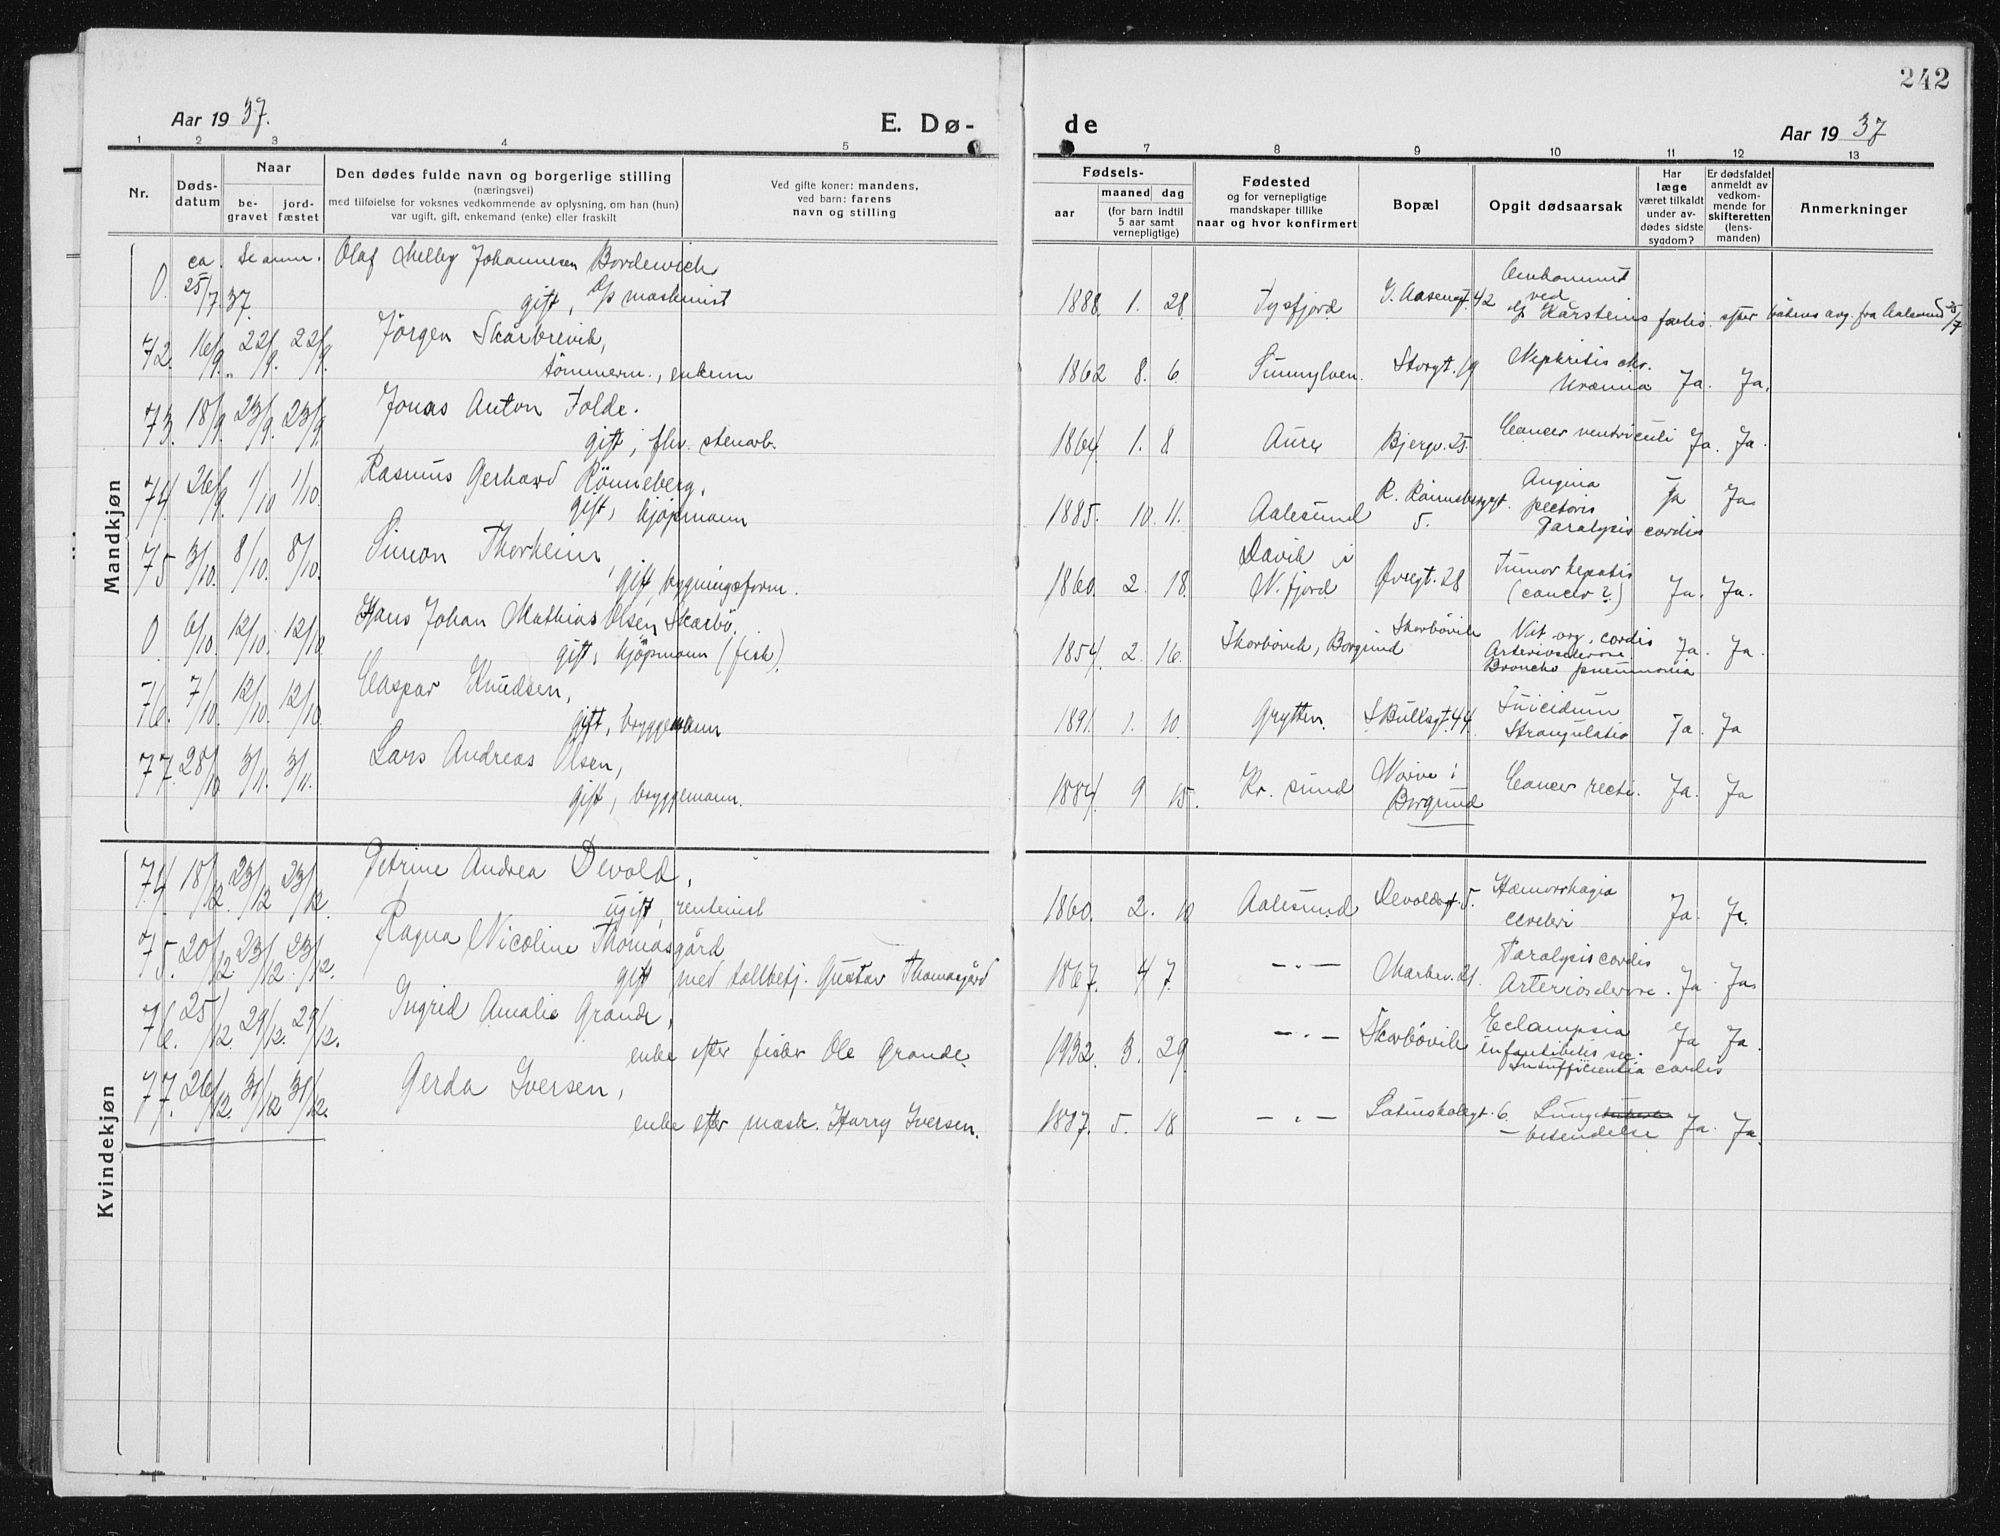 242
Aar 1937.
E. Dø-
de
Aar 1937
1 2 3 4 5 7 8 9 10 11 12 13
Nr.
Døds-
datum
Naar
be-
gravet
jord-
fæstet
Den dødes fulde navn og borgerlige stilling
(næringsvei)
med tilføielse for voksnes vedkommende av oplysning, om han (hun)
var ugift, gift, enkemand (enke) eller fraskilt
Ved gifte koner: mandens,
ved barn: farens
navn og stilling
Fødsels-
aar
maaned dag
(for barn indtil
5 aar samt
vernepligtige)
Fødested
og for vernepligtige
mandskaper tillike
naar og hvor konfirmert
Bopæl
Opgit dødsaarsak
Har
læge
været tilkaldt
under av-
dødes sidste
sygdom?
Er dødsfaldet
anmeldt av
vedkom-
mende for
skifteretten
(lens-
manden)
Anmerkninger
Mandkjøn
0 ca. 25/7 37. Se anm. Olaf Melby Johannesen Bordewich
gift, maskinist
1888. 1. 28. Tysfjord I. Aasengt. 42
ved
Karsteins forlis. efter båtens avg. fra Aalesund 25/7
72. 16/9. 22/9. 22/9. Jörgen Skårbrevik,
tömmerm., enkem
1862 8. 6. Sunnylven. Storgt. 19 Nephritis chr.
Uræmia Ja. Ja.
73. 18/9. 23/9. 23/9. Jonas Anton Folde.
gift, fhv. stenarb.
1864. 1. 8 Aure Bjergv. 25. Cancer ventriculi Ja. Ja.
74. 26/9. 1/10 1/10. Rasmus Gerhard Rönneberg.
gift, kjöpmann
1885. 10. 11. Aalesund R. Rönnebergsgt. 5. Angina
pectoris
Paralysis cordis Ja Ja
75 3/10. 8/10. 8/10. Simon Thorheim,
gift, bygningsform.
1860. 2. 18. Davik i
N. fjord Øvregt. 28 Tumor hepatis
(cancer?) Ja. Ja.
0. 6/10 12/10. 12/10. Hans Johan Mathias Olsen Skarbö.
gift, kjöpmann (fisk).
1854. 2. 16. Skorbövik, Borgund Skorbövik Vit. org. cordis
Arteriosclerose.
Broncho pneumonia Ja. Ja.
76. 7/10. 12/10. 12/10. Caspar Knudsen,
gift, bryggemann
1891. 1. 10. Grytten. S. Bullsgt. 44. Suicidum
Strangulatio Ja. Ja
77. 28/10 3/11. 3/11. Lars Andreas Olsen,
gift, bryggemann.
1884. 9 15. Kr. sund Nörve i
Borgund Cancer recti. Ja. Ja
Kvindekjøn
74. 18/12. 23/12 23/12. Petrine Andrea Devold,
ugift, rentenist
1860. 2. 10 Aalesund Devoldsgt. 5. Hæmorrhagia
cerebri Ja. Ja.
75. 20/12 23/12. 23/12. Ragna Nicoline Thomasgård
gift med tollbetj. Gustav Thomasgård
1867. 4 7. — " — 21. Paralysis cordis
Arteriosclerose. Ja. Ja
76. 25/12. 29/12. 29/12. Ingrid Amalie Grande,
enke efter fisker Ole Grande.
1932. 3. 29. — " — Skorbövik Eclampsia
infantibilis sec.
Insufficientia cordis Ja Ja.
77. 26/12. 31/12 31/12. Gerda Iversen,
enke efter mask. Harry Iversen.
1887. 5. 18 — " — Latinskolegt. 6. Lunge
— betendelse Ja. Ja.